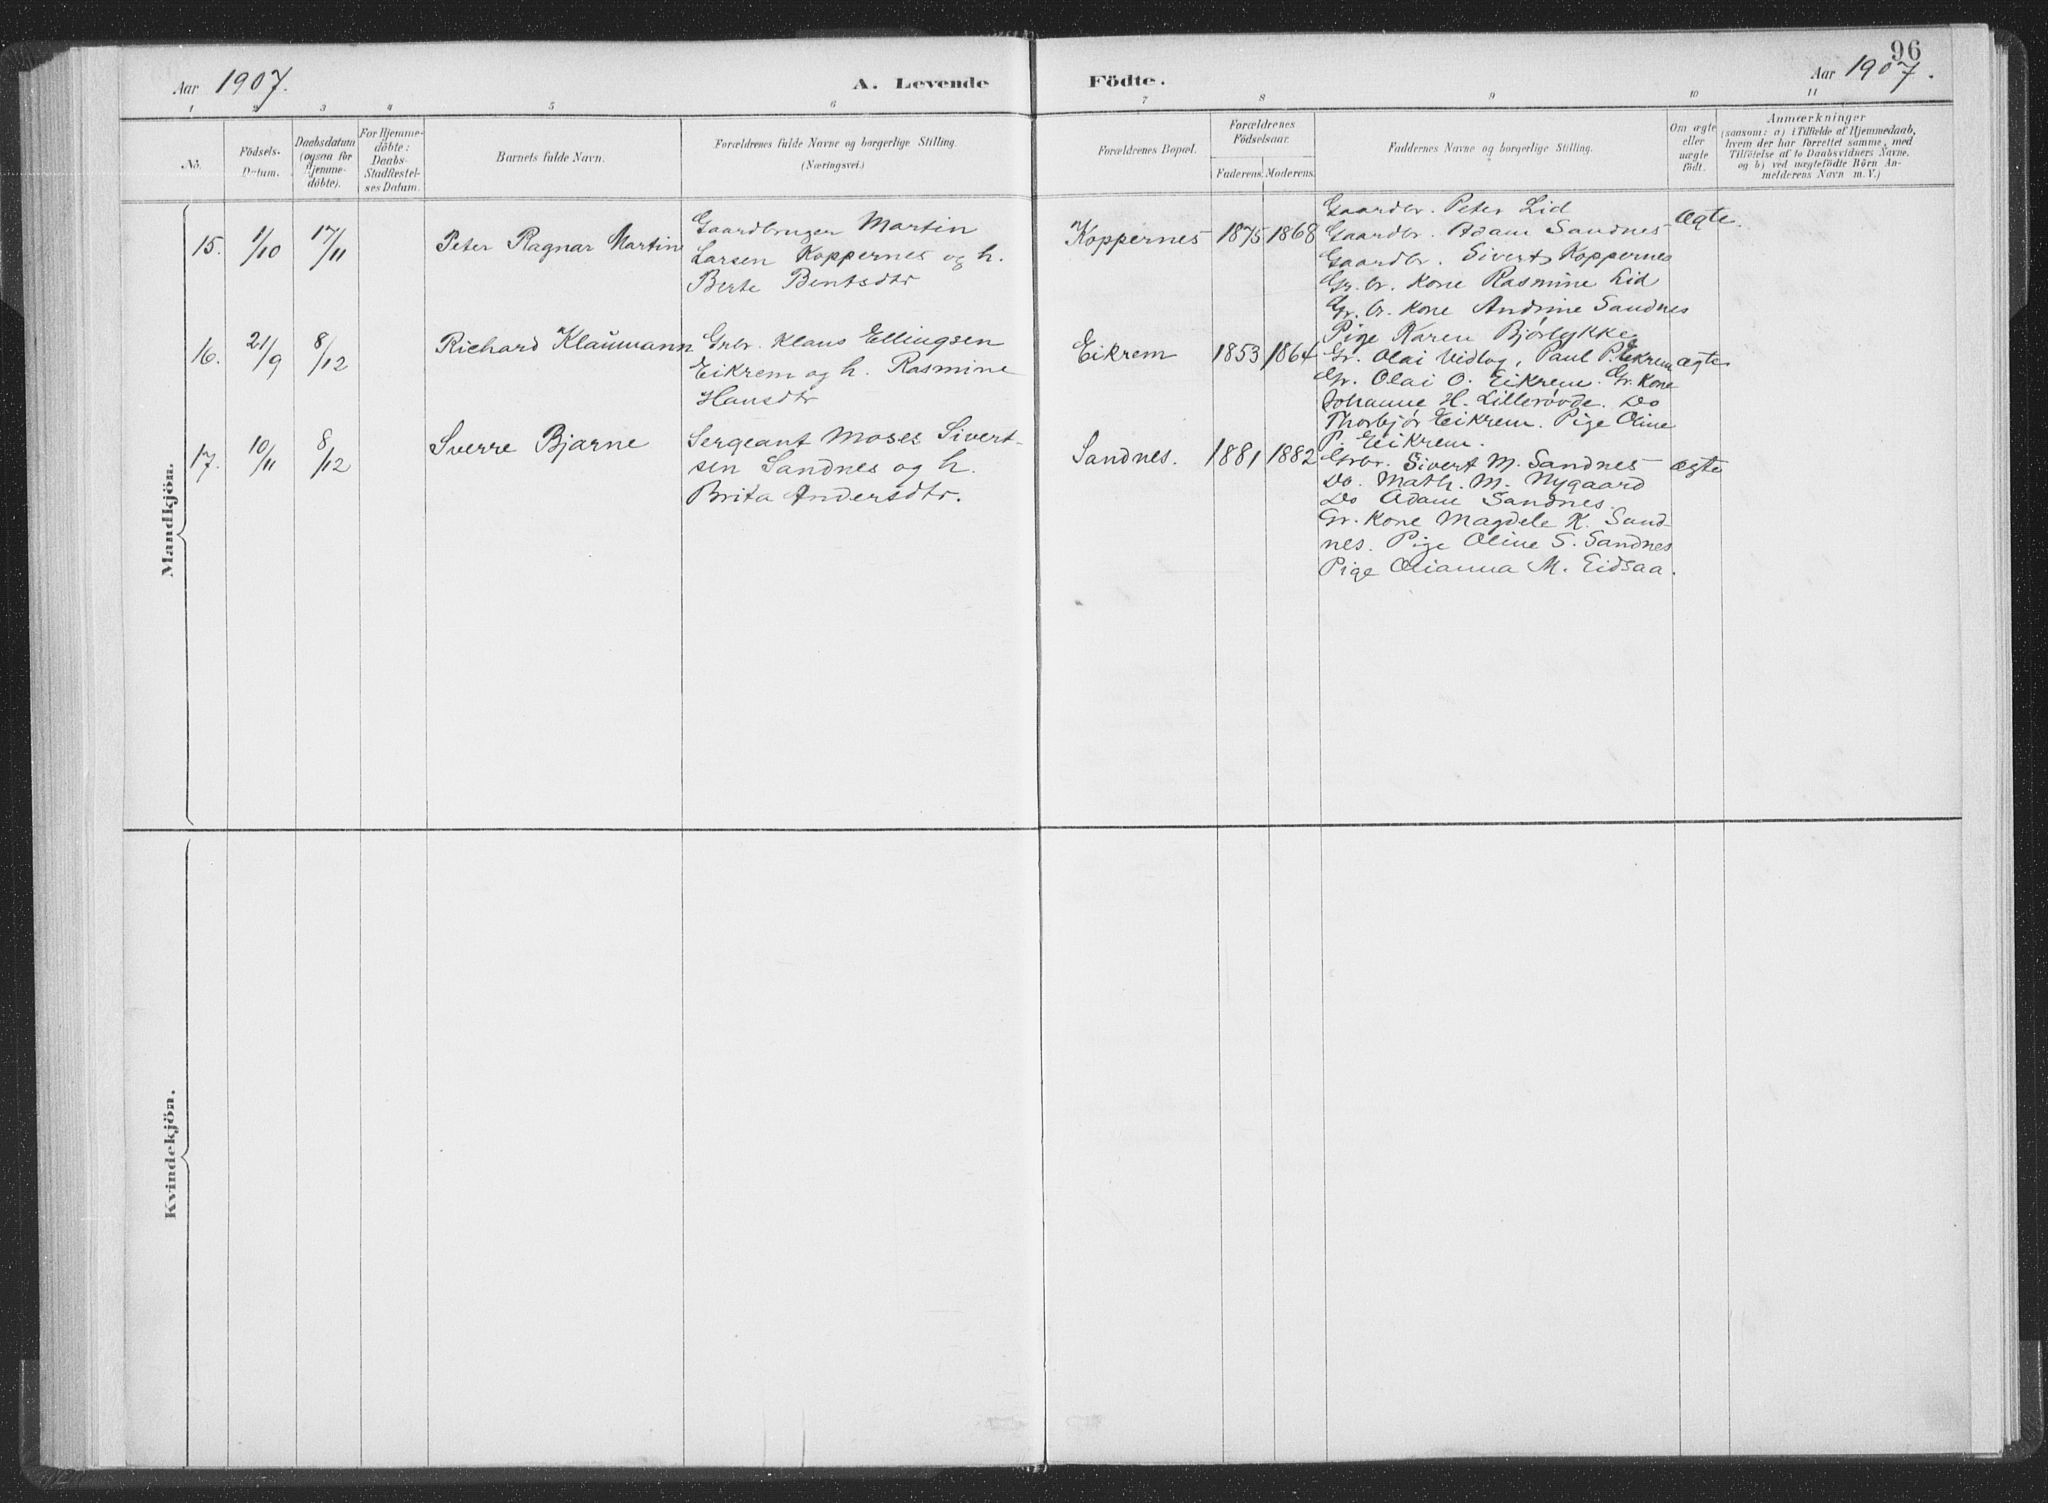 96
Aar 1907. A. Levende Födte. Aar 1907.
1 2 3 4 5 6 7 8 9 10 11
No.
Födsels-
Datum.
Daabsdatum
(ogsaa for
Hjemme-
döbte).
For Hjemme-
döbte:
Daabs-
Stadfæstel-
ses Datum.
Barnets fulde Navn.
Forældrenes fulde Navne og borgerlige Stilling.
(Næringsvei.)
Forældrenes Bopæl.
Forældrenes
Födselsaar.
Faderens. Moderens.
Faddernes Navne og borgerlige Stilling.
Om ægte
eller
uægte
födt.
Anmærkninger
(saasom: a) i Tilfælde af Hjemmedaab,
hvem der har forrettet samme, med
Tilföielse af to Daabsvidners Navne,
og b) ved uægtefödte Börn An-
melderens Navn m. V.)
Mandkjön.
15. 1/10 17/11
Peter Ragnar Martin
Gaardbruger Martin
Larsen Koppernes og h.
Berte Bentsdtr
Koppernes 1875 1868
Gaardbr. Peter Lid
Gaardbr. Adam Sandnes
Gaardbr. Sivert Koppernes
Gr. br. Kone Rasmine Lid
Gr. br. Kone Andrine Sandnes
Pige Karen Bjørlykke
ægte.
16. 21/9 8/12
Richard Klaumann
Grbr. Klaus Ellingsen
Eikrem og h. Rasmine
Hansdtr
Eikrem 1853 1864
Gr. Olai Vedlog, Paul P. Eikrem
Gr. Olai O. Eikrem. Gr. Kone
Johanne H. Lillerøvde. Do
Thorbjør Eikrem. Pige Oline
P. Eikrem.
ægte
17. 10/11 8/12
Sverre Bjarne
Sergeant Moses Sivert-
sen Sandnes og h.
Brita Andersdtr.
Sandnes. 1881 1882
Grbr. Sivert M. Sandnes
Do. Math. M. Nygaard
Do Adam Sandnes.
Gr. Kone Magdele K. Sand-
nes. Pige Oline S. Sandnes
Pige Olianna M. Eidsaa.
ægte
Kvindekjön.